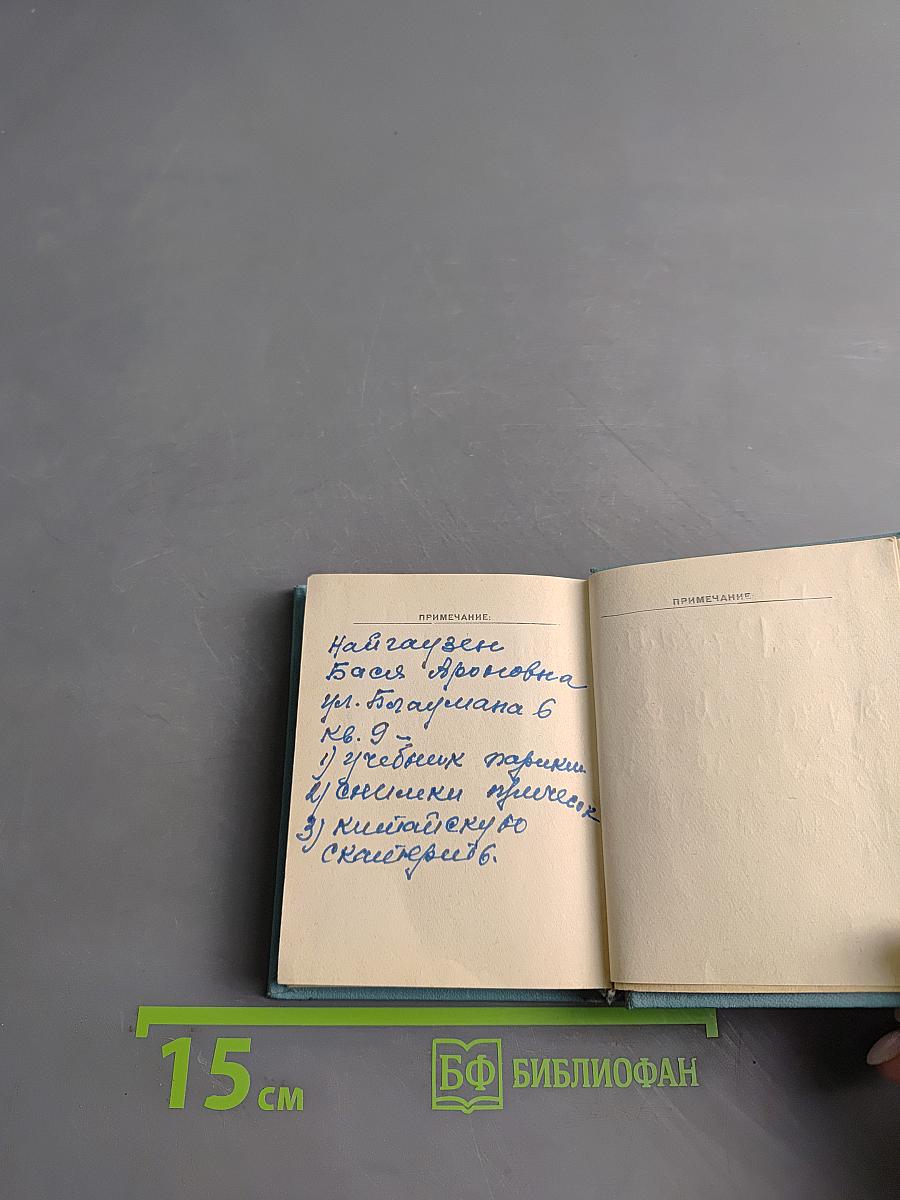 ПРИМЕЧАНИЕ:
Найгаузен
Бася Ароновна
ул. Блаумана 6
кв. 9 –
1) учебник парикм.
2) снимки причесок
3) китайскую
скатерть.
ПРИМЕЧАНИЕ:
15 см
БФ БИБЛИОФАН